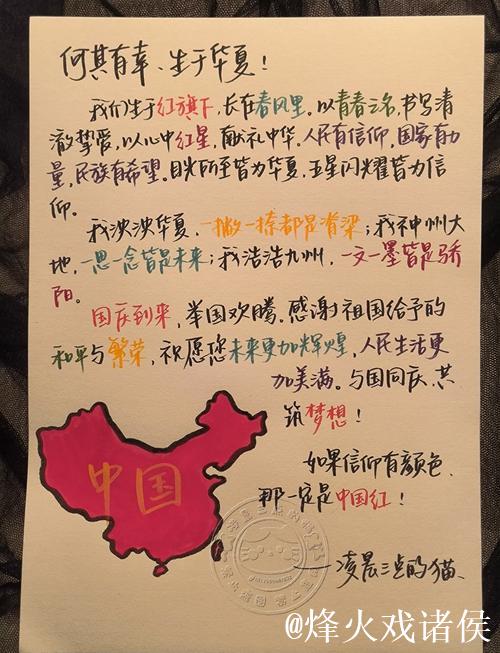 何其有幸、生于华夏！
我们生于红旗下，长在春风里。以青春之名，书写清
澈挚爱，以心中红星，献礼中华。人民有信仰，国家有力
量，民族有希望。目光所至皆为华夏，五星闪耀皆为信
仰。
我泱泱华夏，一撇一捺都是脊梁；我神州大
地，一思一念皆是未来；我浩浩九州，一文一墨皆是骄
阳。
国庆到来，举国欢腾。感谢祖国给予的
和平与繁荣，祝愿您未来更加辉煌，人民生活更
加美满。与国同庆、共
筑梦想！
中国
如果信仰有颜色、
那一定是中国红！
——凌晨三点的猫、
@烽火戏诸侯